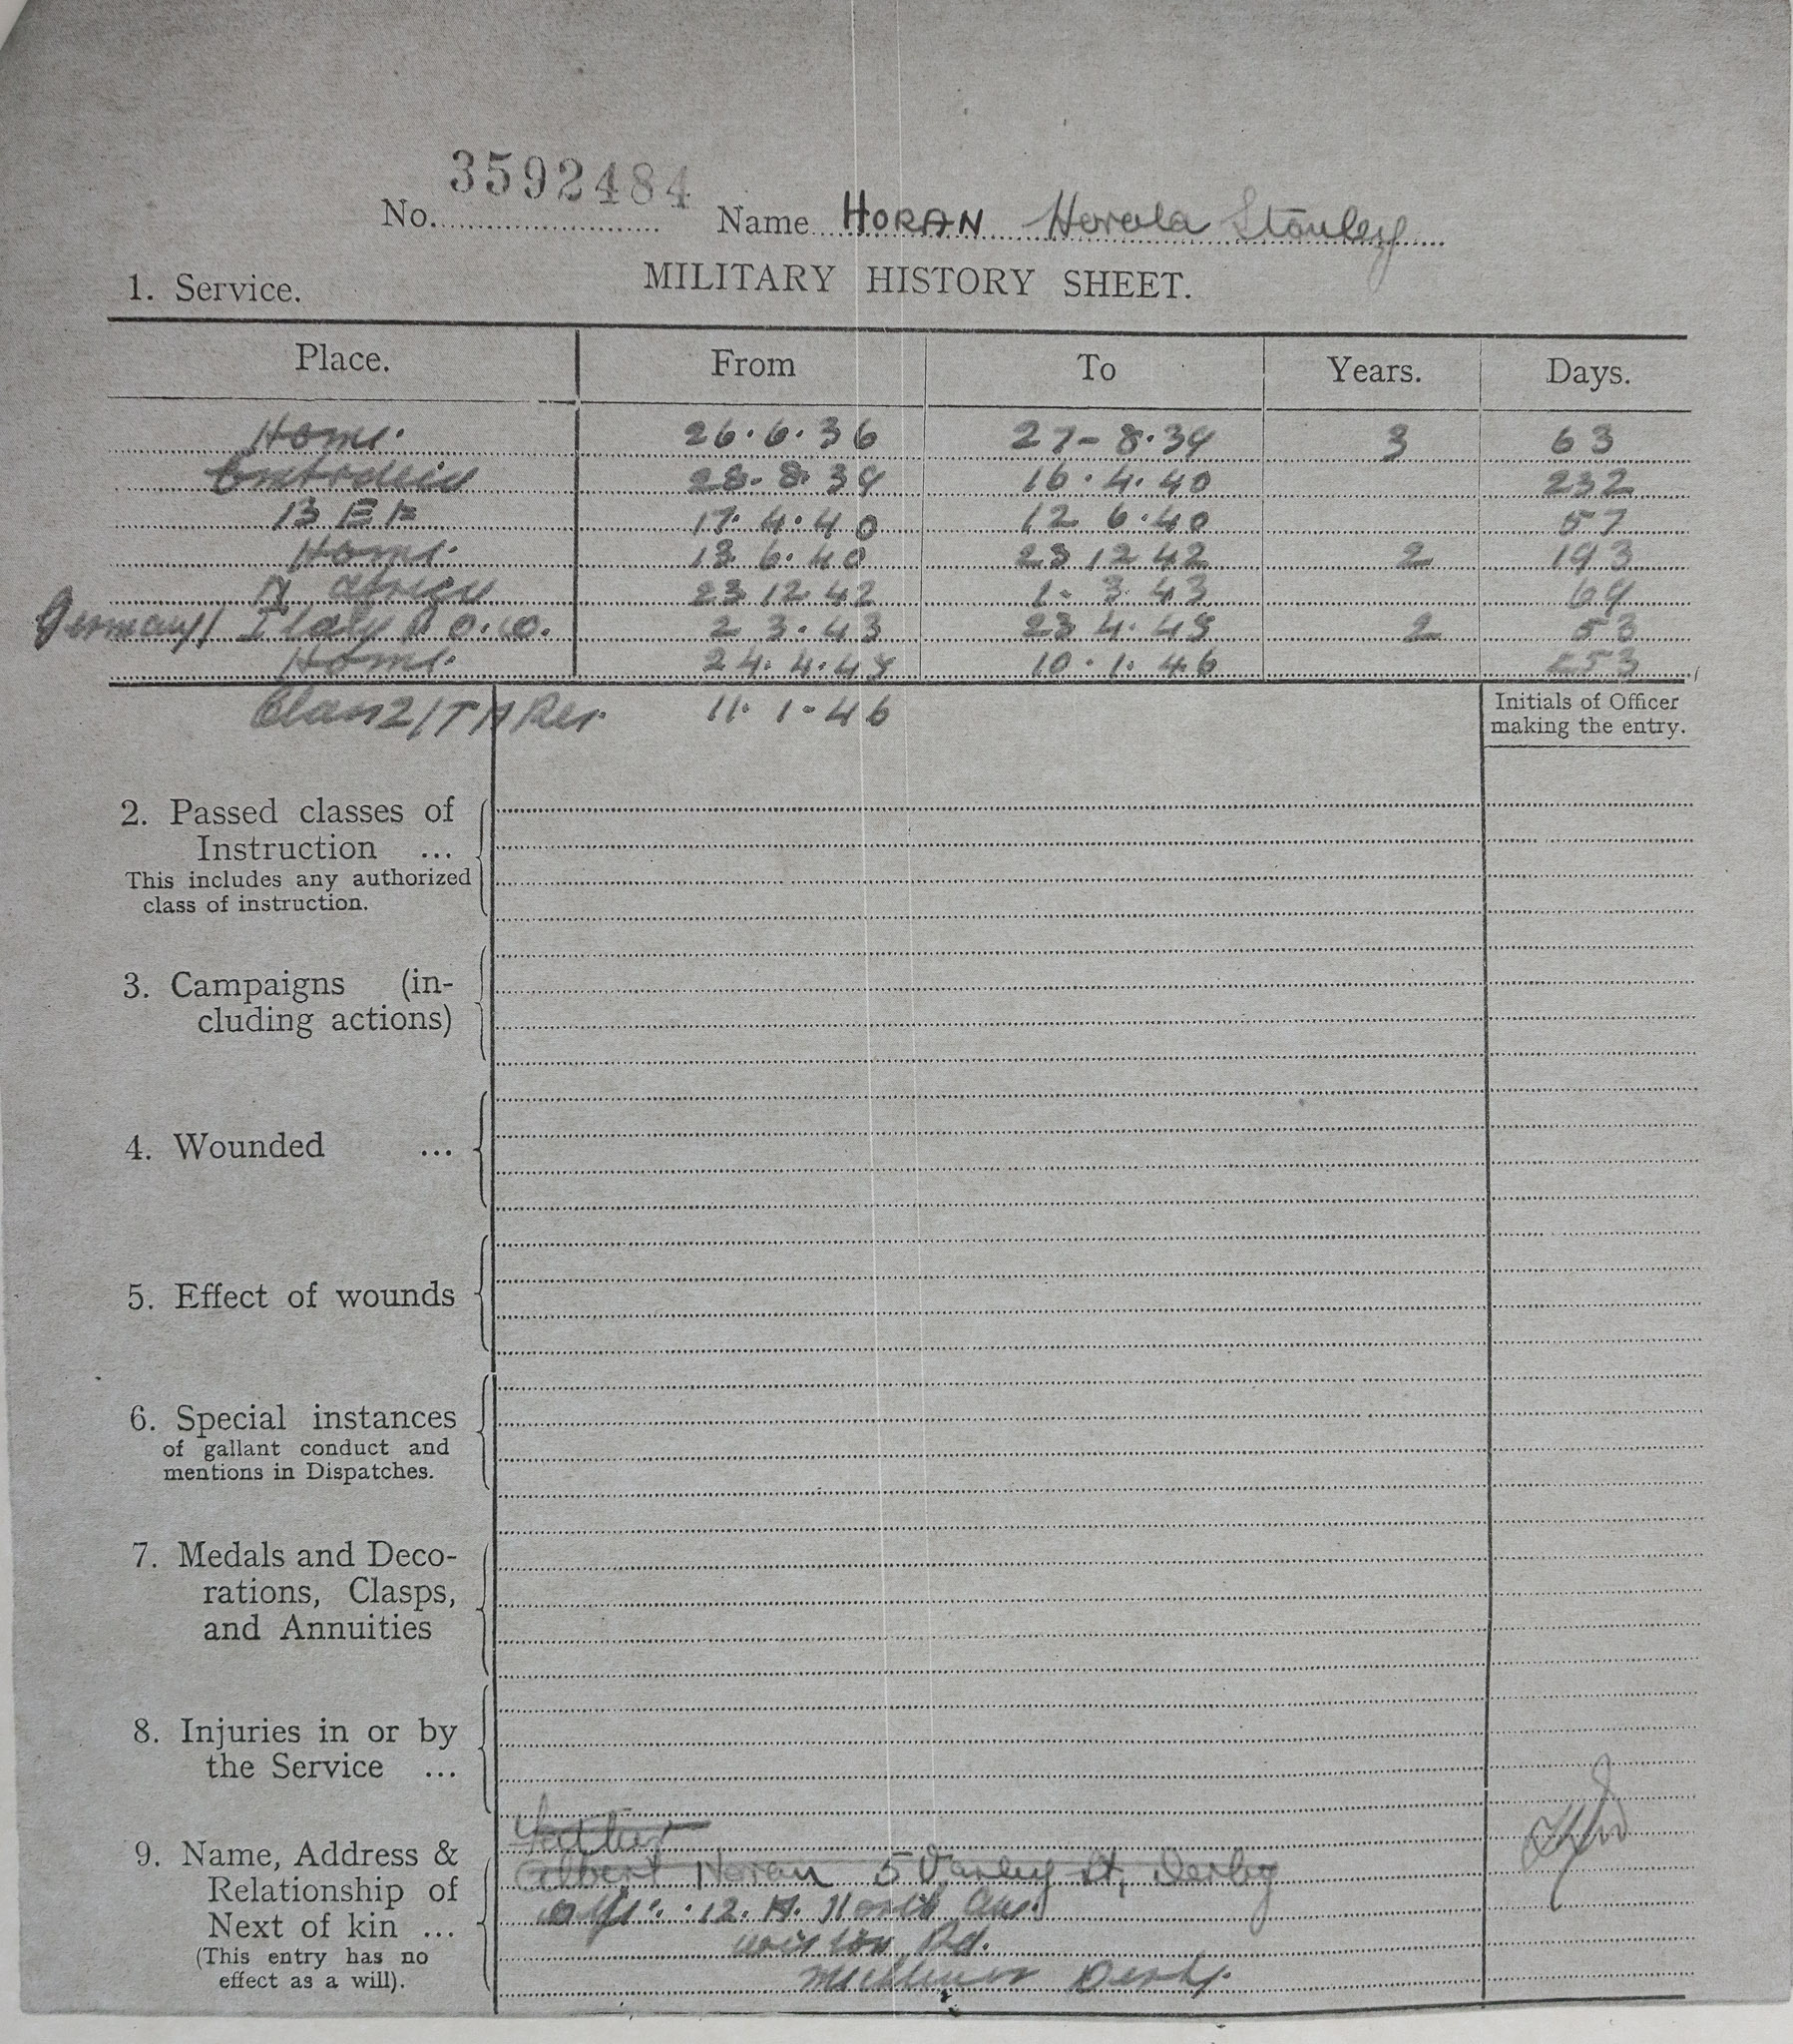 3592484
No. Name HORAN Harold Stanley
MILITARY HISTORY SHEET.
1. Service.
Place. From To Years. Days.
Home. 26.6.36 27-8.39 3 63
Embodied 28.8.39 16.4.40 232
BEF 17.4.40 12 6.40 57
Home. 13 6.40 23 12 42 2 193
N Africa 23 12 42 1. 3 43 69
Germany/ Italy P.O.W. 2 3.43 23 4.45 2 53
Home. 24.4.45 10.1.46
Class Z/TA Res. 11.1.46
Initials of Officer
making the entry.
2. Passed classes of
Instruction ...
This includes any authorized
class of instruction.
3. Campaigns (in-
cluding actions)
4. Wounded ...
5. Effect of wounds
6. Special instances
of gallant conduct and
mentions in Dispatches.
7. Medals and Deco-
rations, Clasps,
and Annuities
8. Injuries in or by
the Service ...
Father
9. Name, Address &
Relationship of
Next of kin ...
(This entry has no
effect as a will).
Albert Horan 5 Varley St, Derby
12. A. North Av.
Rd.
Derby.